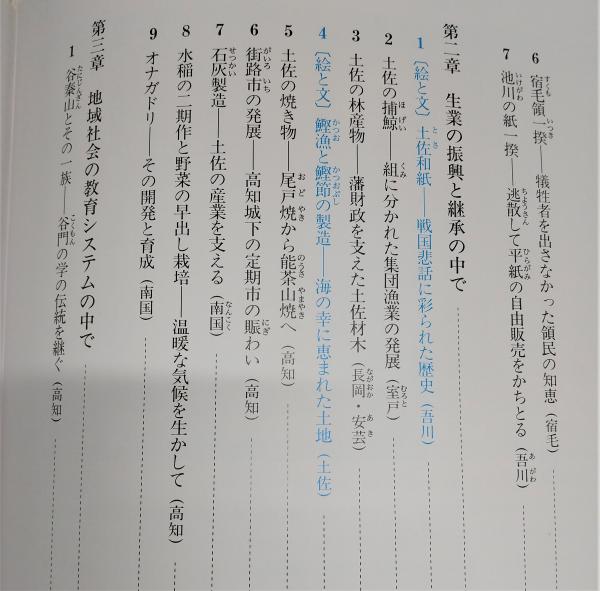 6 宿毛領一揆――犠牲者を出さなかった領民の知恵(宿毛)
7 池川の紙一揆――逃散して平紙の自由販売をかちとる(吾川)
第二章 生業の振興と継承の中で
1 〔絵と文〕土佐和紙――戦国悲話に彩られた歴史(吾川)
2 土佐の捕鯨――組に分かれた集団漁業の発展(室戸)
3 土佐の林産物 藩財政を支えた土佐材木(長岡・安芸)
4 〔絵と文〕鰹漁と鰹節の製造――海の幸に恵まれた土地(土佐)
5 土佐の焼き物――尾戸焼から能茶山焼へ(高知)
6 街路市の発展――高知城下の定期市の賑わい(高知)
7 石灰製造――土佐の産業を支える(南国)
8 水稲の二期作と野菜の早出し栽培――温暖な気候を生かして(高知)
9 オナガドリ――その開発と育成(南国)
第三章 地域社会の教育システムの中で
1 谷秦山とその一族――谷門の学の伝統を継ぐ(高知)